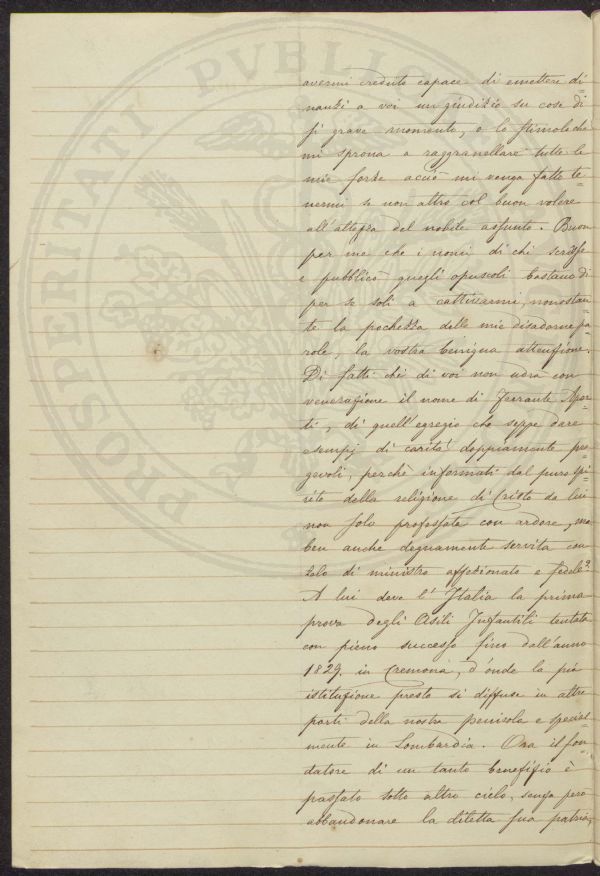 PROSPERITATI PVBLIC
avermi creduto capace di emettere di=
nanzi a voi un giudizio su cose di
sì grave momento, e lo stimolo che
mi sprona a raggranellare tutte le
mie forze acciò mi venga fatto te=
nermi se non altro col buon volere
all'altezza del nobile assunto. Buon
per me che i nomi di chi scrisse
e pubblicò quegli opuscoli bastano di
per se soli a cattivarmi, nonostan
te la pochezza delle mie disadorne pa
role, la vostra benigna attenzione.
Di fatti chi di voi non udrà con
venerazione il nome di Ferrante Apor
ti, di quell'egregio che seppe dare
esempj di carità doppiamente pre
gevoli, perchè informati dal puro spi
rito della religione di Cristo da lui
non solo professata con ardore, ma
ben anche degnamente servita con
zelo di ministro affezionato e fedele?
A lui deve l'Italia la prima
prova degli Asili Infantili tentata
con pieno successo fino dall'anno
1829. in Cremona, d'onde la pia
istituzione presto si diffuse in altre
parti della nostra penisola e special=
mente in Lombardia. Ora il fon
datore di un tanto benefizio è
passato sotto altro cielo, senza però
abbandonare la diletta sua patria,